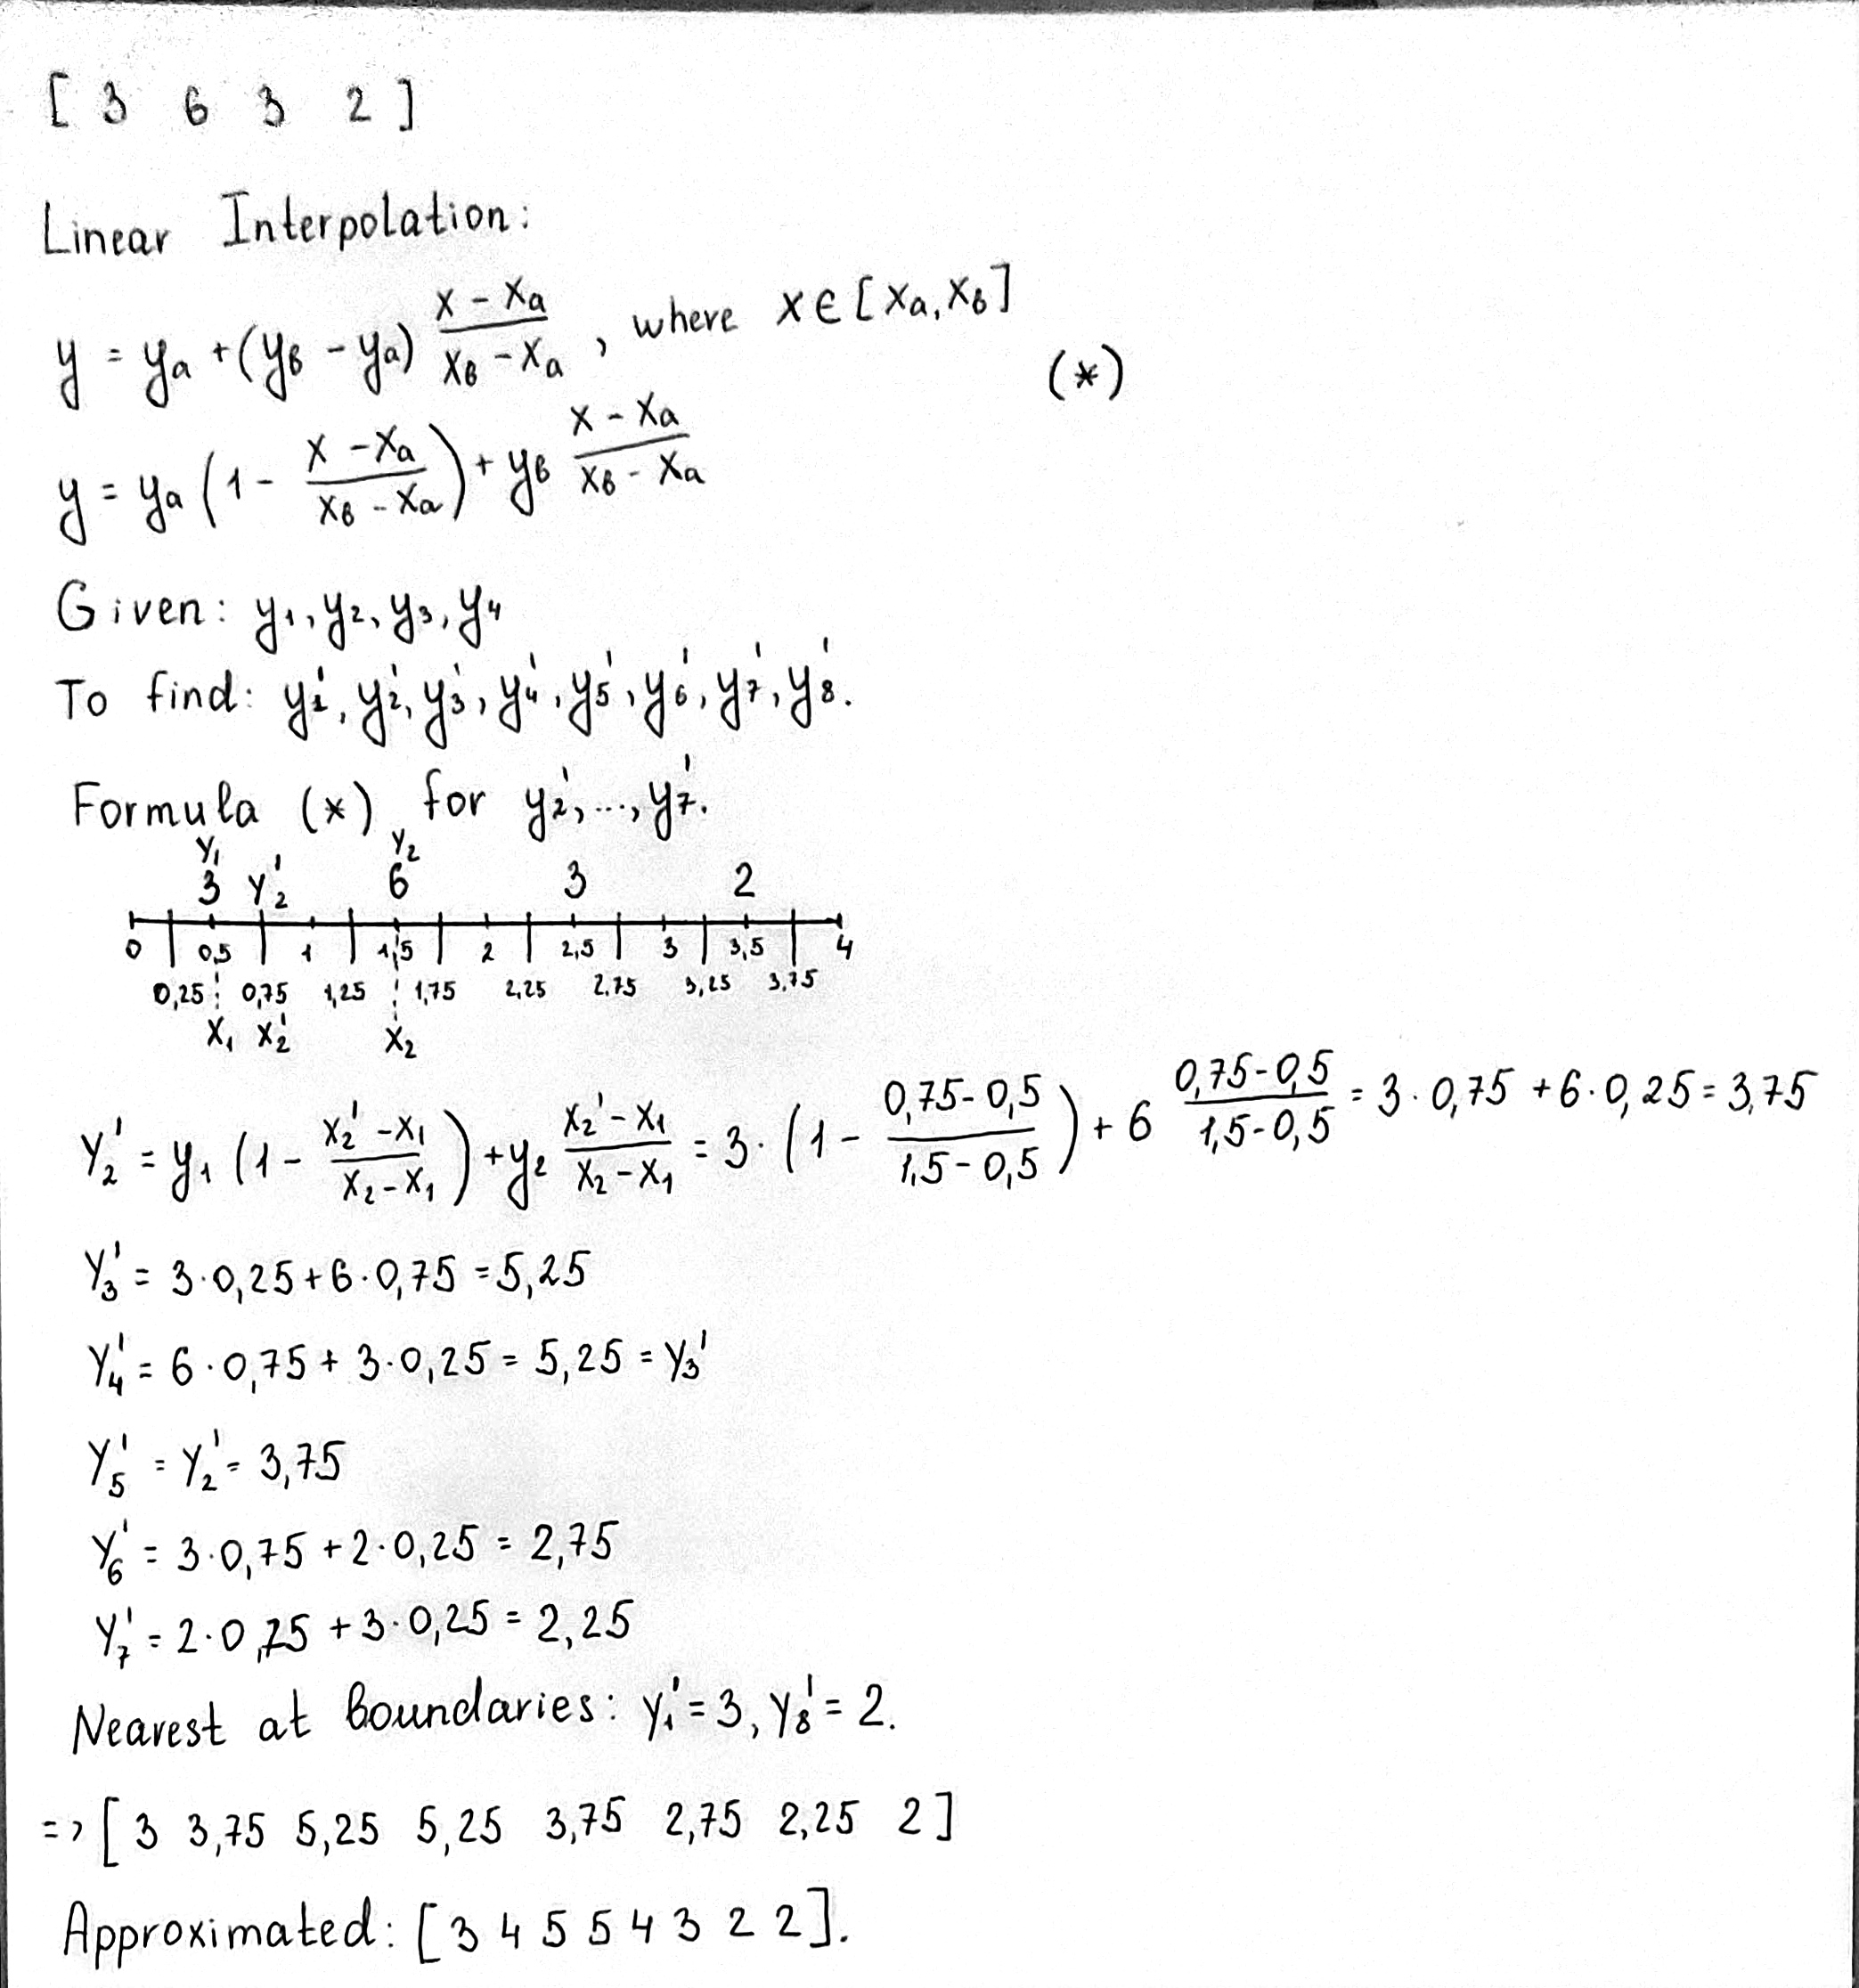 [ 3 6 3 2 ]
Linear Interpolation:
y = ya + (yb - ya) (x - xa)/(xb - xa), where x ∈ [xa, xb]
(*)
y = ya (1 - (x - xa)/(xb - xa)) + yb (x - xa)/(xb - xa)
Given: y1, y2, y3, y4
To find: y1', y2', y3', y4', y5', y6', y7', y8'.
Formula (*) for y2', ..., y7'.
Y1 Y2
3 Y2' 6 3 2
0 0,5 1 1,5 2 2,5 3 3,5 4
0,25 0,75 1,25 1,75 2,25 2,75 3,25 3,75
X1 X2' X2
Y2' = y1 (1 - (x2' - x1)/(x2 - x1)) + y2 (x2' - x1)/(x2 - x1) = 3 · (1 - (0,75 - 0,5)/(1,5 - 0,5)) + 6 (0,75 - 0,5)/(1,5 - 0,5) = 3 · 0,75 + 6 · 0,25 = 3,75
Y3' = 3 · 0,25 + 6 · 0,75 = 5,25
Y4' = 6 · 0,75 + 3 · 0,25 = 5,25 = Y3'
Y5' = Y2' = 3,75
Y6' = 3 · 0,75 + 2 · 0,25 = 2,75
Y7' = 2 · 0,75 + 3 · 0,25 = 2,25
Nearest at boundaries: Y1' = 3, Y8' = 2.
=> [ 3 3,75 5,25 5,25 3,75 2,75 2,25 2 ]
Approximated: [ 3 4 5 5 4 3 2 2 ].